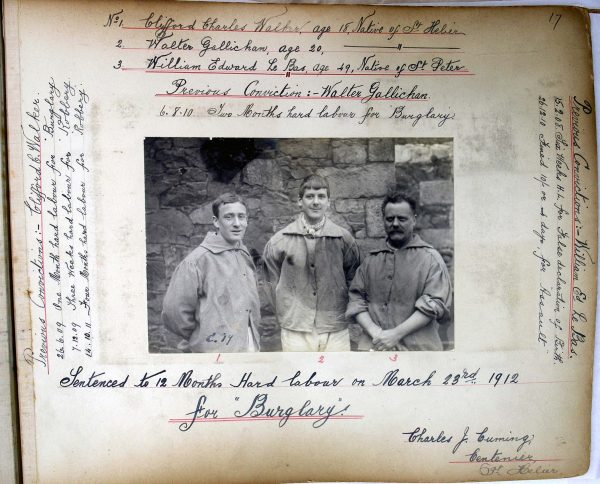 17
No 1 Clifford Charles Walker, age 18, Native of St Helier
2 Walter Gallichan, age 20, "
3 William Edward Le Bas, age 49, Native of St Peter
Previous Conviction :- Walter Gallichan.
6.8.10 Two Months hard labour for Burglary
Previous Convictions :- Clifford C. Walker.
26.6.09 One Month hard labour for Burglary
7.12.09 Three Weeks hard labour for Robbery
14.10.11 Four Months hard labour for Robbery
Previous Convictions :- William Ed Le Bas.
15.2.08 Six Weeks H.L. for False declaration of Birth.
26.12.10 Fined 10/- or 4 days for Assault
1 2 3
Sentenced to 12 Months Hard labour on March 23rd 1912
for "Burglary".
Charles J. Cuming,
Centenier,
St Helier,